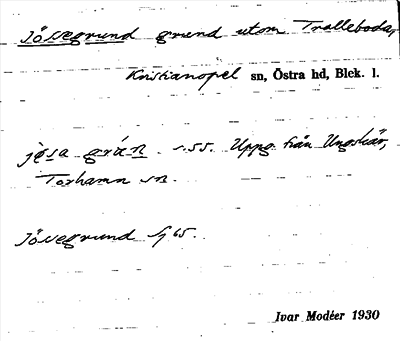 Jössegrund grund utom Tralleboda,
Kristianopel sn, Östra hd, Blek. l.
jøsa grán s. 55. Uppg. från Ungskär,
Torhamn sn.
Jössegrund Sj 65.
Ivar Modéer 1930